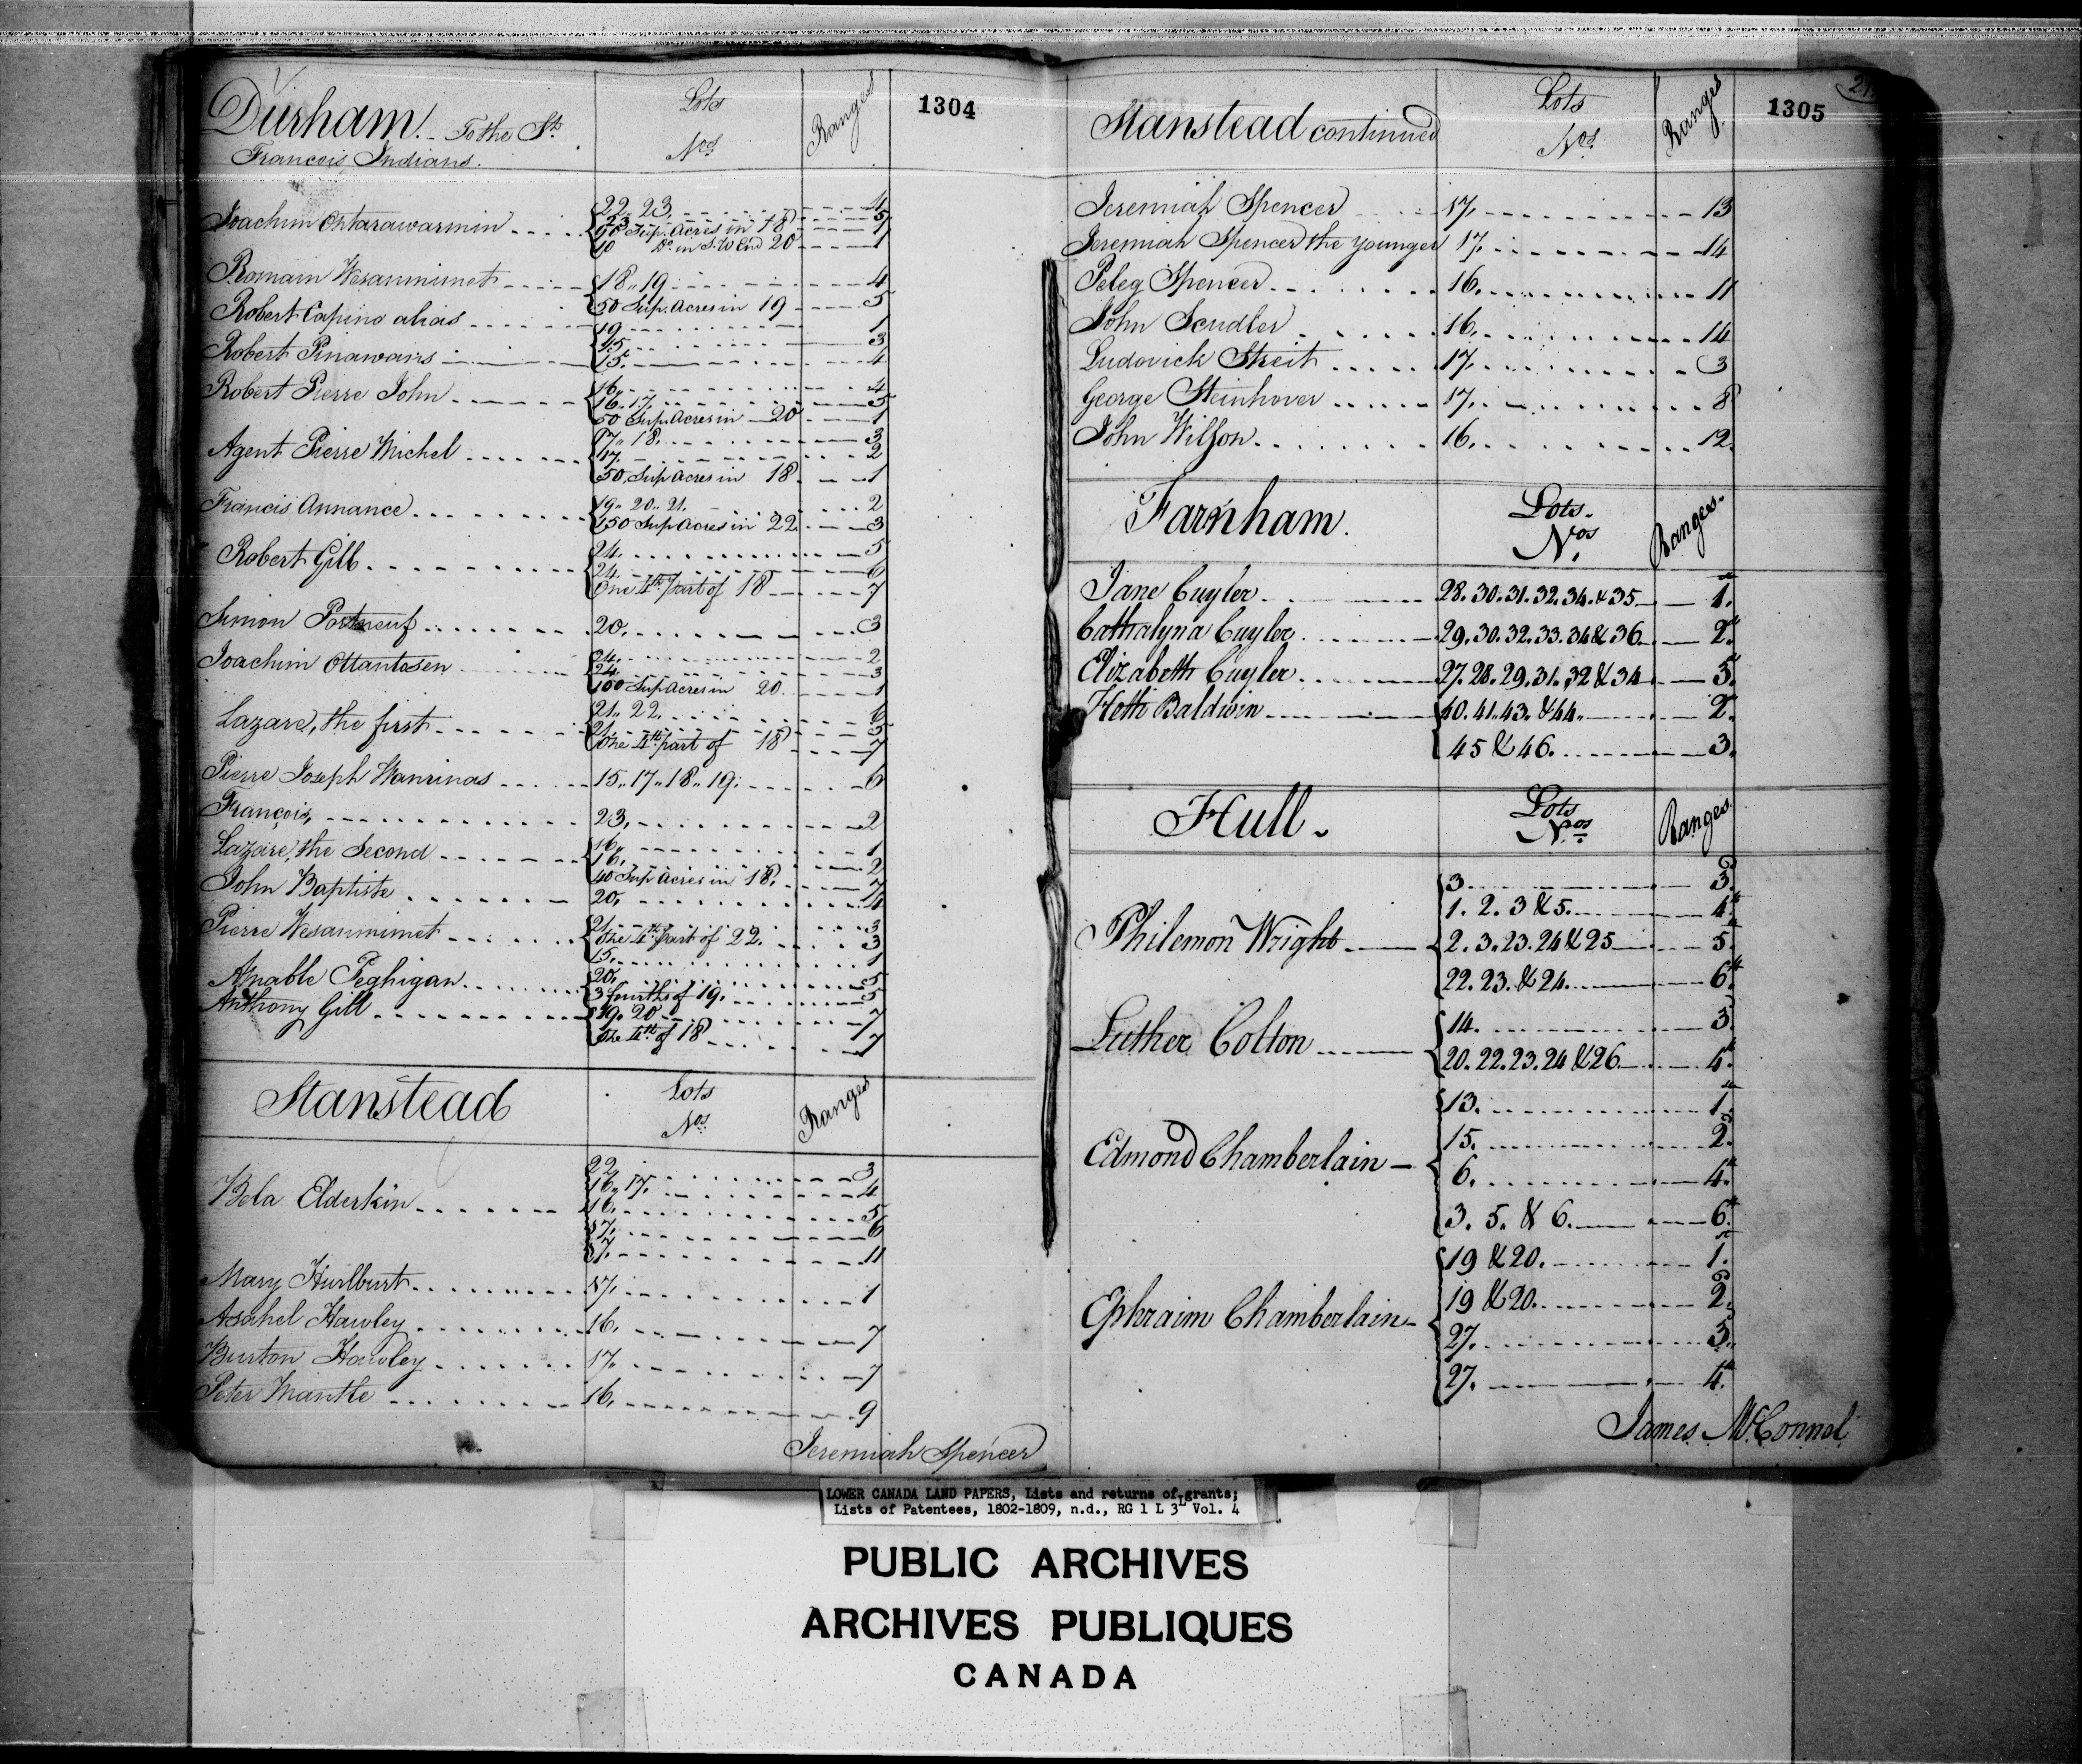 Durham. To the St. Lots Nos. Ranges 1304
Francois Indians.
22. 23. 4
Joachim Ontarawarmin 23 5
90 Sup. Acres in 18 7
10 Do. in S.W End 20 1
Romain Wesanmimet 18.. 19 4
50 Sup. Acres in 19 5
Robert Capino alias
19 1
15 3
Robert Pinawans 15. 4
16. 4
Robert Pierre John 16. 17. 5
50 Sup. Acres in 20 1
17.. 18. 3
Agent Pierre Michel 17. 2
50 Sup Acres in 18 1
Francis Annance 19.. 20.. 21. 2
150 Sup Acres in 22 3
24. 5
Robert Gill 24. 6
One 4th part of 18 7
Simon Portneuf 20. 3
24. 2
Joachim Ottantosen 24. 3
100 Sup Acres in 20. 1
21.. 22. 6
Lazare, the first 21. 5
One 4th part of 18 7
Pierre Joseph Wanrinas 15.. 17.. 18.. 19. 6
François, 23, 2
16. 1
Lazare, the Second 16. 2
40 Sup Acres in 18. 7
John Baptiste 20. 4
21. 3
Pierre Wesanmimet One 4th part of 22. 3
15. 1
Amable Peghigan 20. 5
3 fourths of 19. 5
Anthony Gill 19. 20 7
One 4th of 18 7
Stanstead Lots Nos. Ranges
22 3
16.. 17. 4
Bela Elderkin 16. 5
17. 6
17. 11
Mary Hurlburt 17. 1
Asahel Hawley 16. 7
Burton Hawley 17. 7
Peter Mantle 16. 9
Jeremiah Spencer
Stanstead continued Lots Nos. Ranges 1305
Jeremiah Spencer 17. 13
Jeremiah Spencer the younger 17. 14
Peleg Spencer 16. 11
John Scudler 16. 14
Ludovick Streit 17. 3
George Steinhover 17. 8
John Wilson 16. 12
Farnham. Lots. Nos. Ranges.
Jane Cuyler 28. 30. 31. 32. 34. & 35 1.
Cathalyna Cuyler 29. 30. 32. 33. 34 & 36 2.
Elizabeth Cuyler 27. 28. 29. 31. 32 & 34 3.
Heth Baldwin 40. 41. 43. & 44. 2.
45 & 46. 3.
Hull. Lots Nos. Ranges
3 3.
1. 2. 3 & 5. 4th
Philemon Wright 2. 3. 23. 24 & 25 5.th
22. 23. & 24. 6.th
Luther Colton 14. 3.
20. 22. 23. 24 & 26 4.th
13. 1.
Edmond Chamberlain 15. 2.
6. 4.th
3. 5. & 6. 6.th
19 & 20. 1.
Ephraim Chamberlain 19 & 20. 2.
27. 3.
27. 4.th
James McConnel
LOWER CANADA LAND PAPERS, Lists and returns of grants;
Lists of Patentees, 1802-1809, n.d., RG 1 L 3L Vol. 4
PUBLIC ARCHIVES
ARCHIVES PUBLIQUES
CANADA